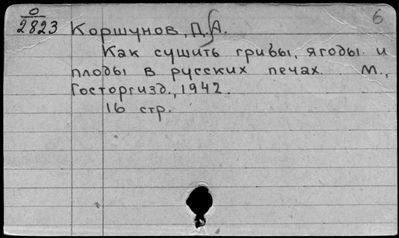 О
2823 Коршунов, Д. А. 6
Как сушить грибы, ягоды и
плоды в русских печах. М.,
Госторгизд., 1942.
16 стр.